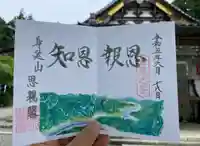 令和五年六月十八日
知恩報恩
身延山
思親閣